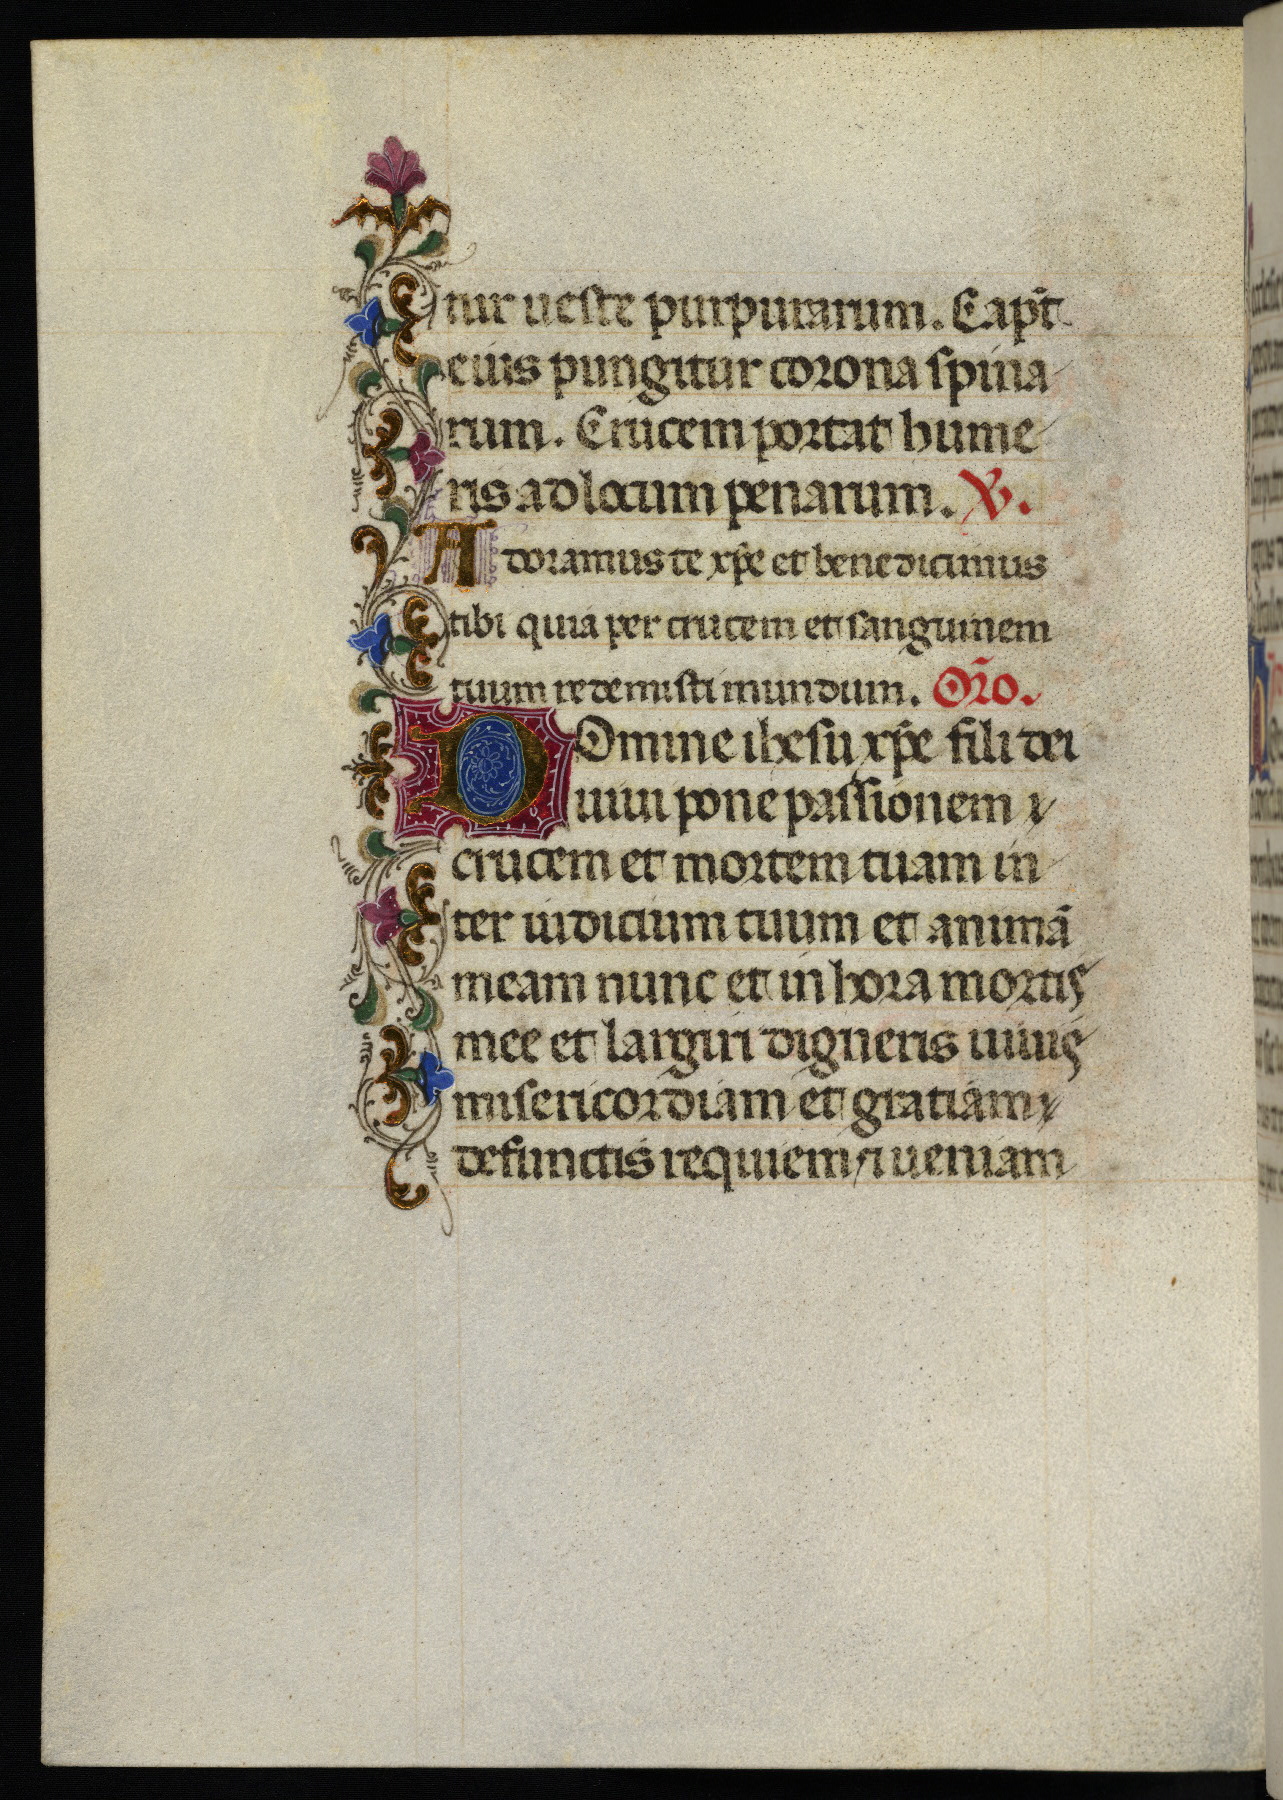 tur ueste purpurarum. Capt̄
eius pungitur corona spina
rum. Crucem portat hume
ris ad locum penarum. V̕.
Adoramus te xp̄e et benedicimus
tibi quia per crucem et sanguinem
tuum redemisti mundum. Or̄o.
DOmine ihesu xp̄e fili dei
uiui pone passionem ⁊
crucem et mortem tuam in
ter iudicium tuum et animā
meam nunc et in hora mortis
mee et largiri digneris uiuis
misericordiam et gratiam ⁊
defunctis requiem ⁊ ueniam